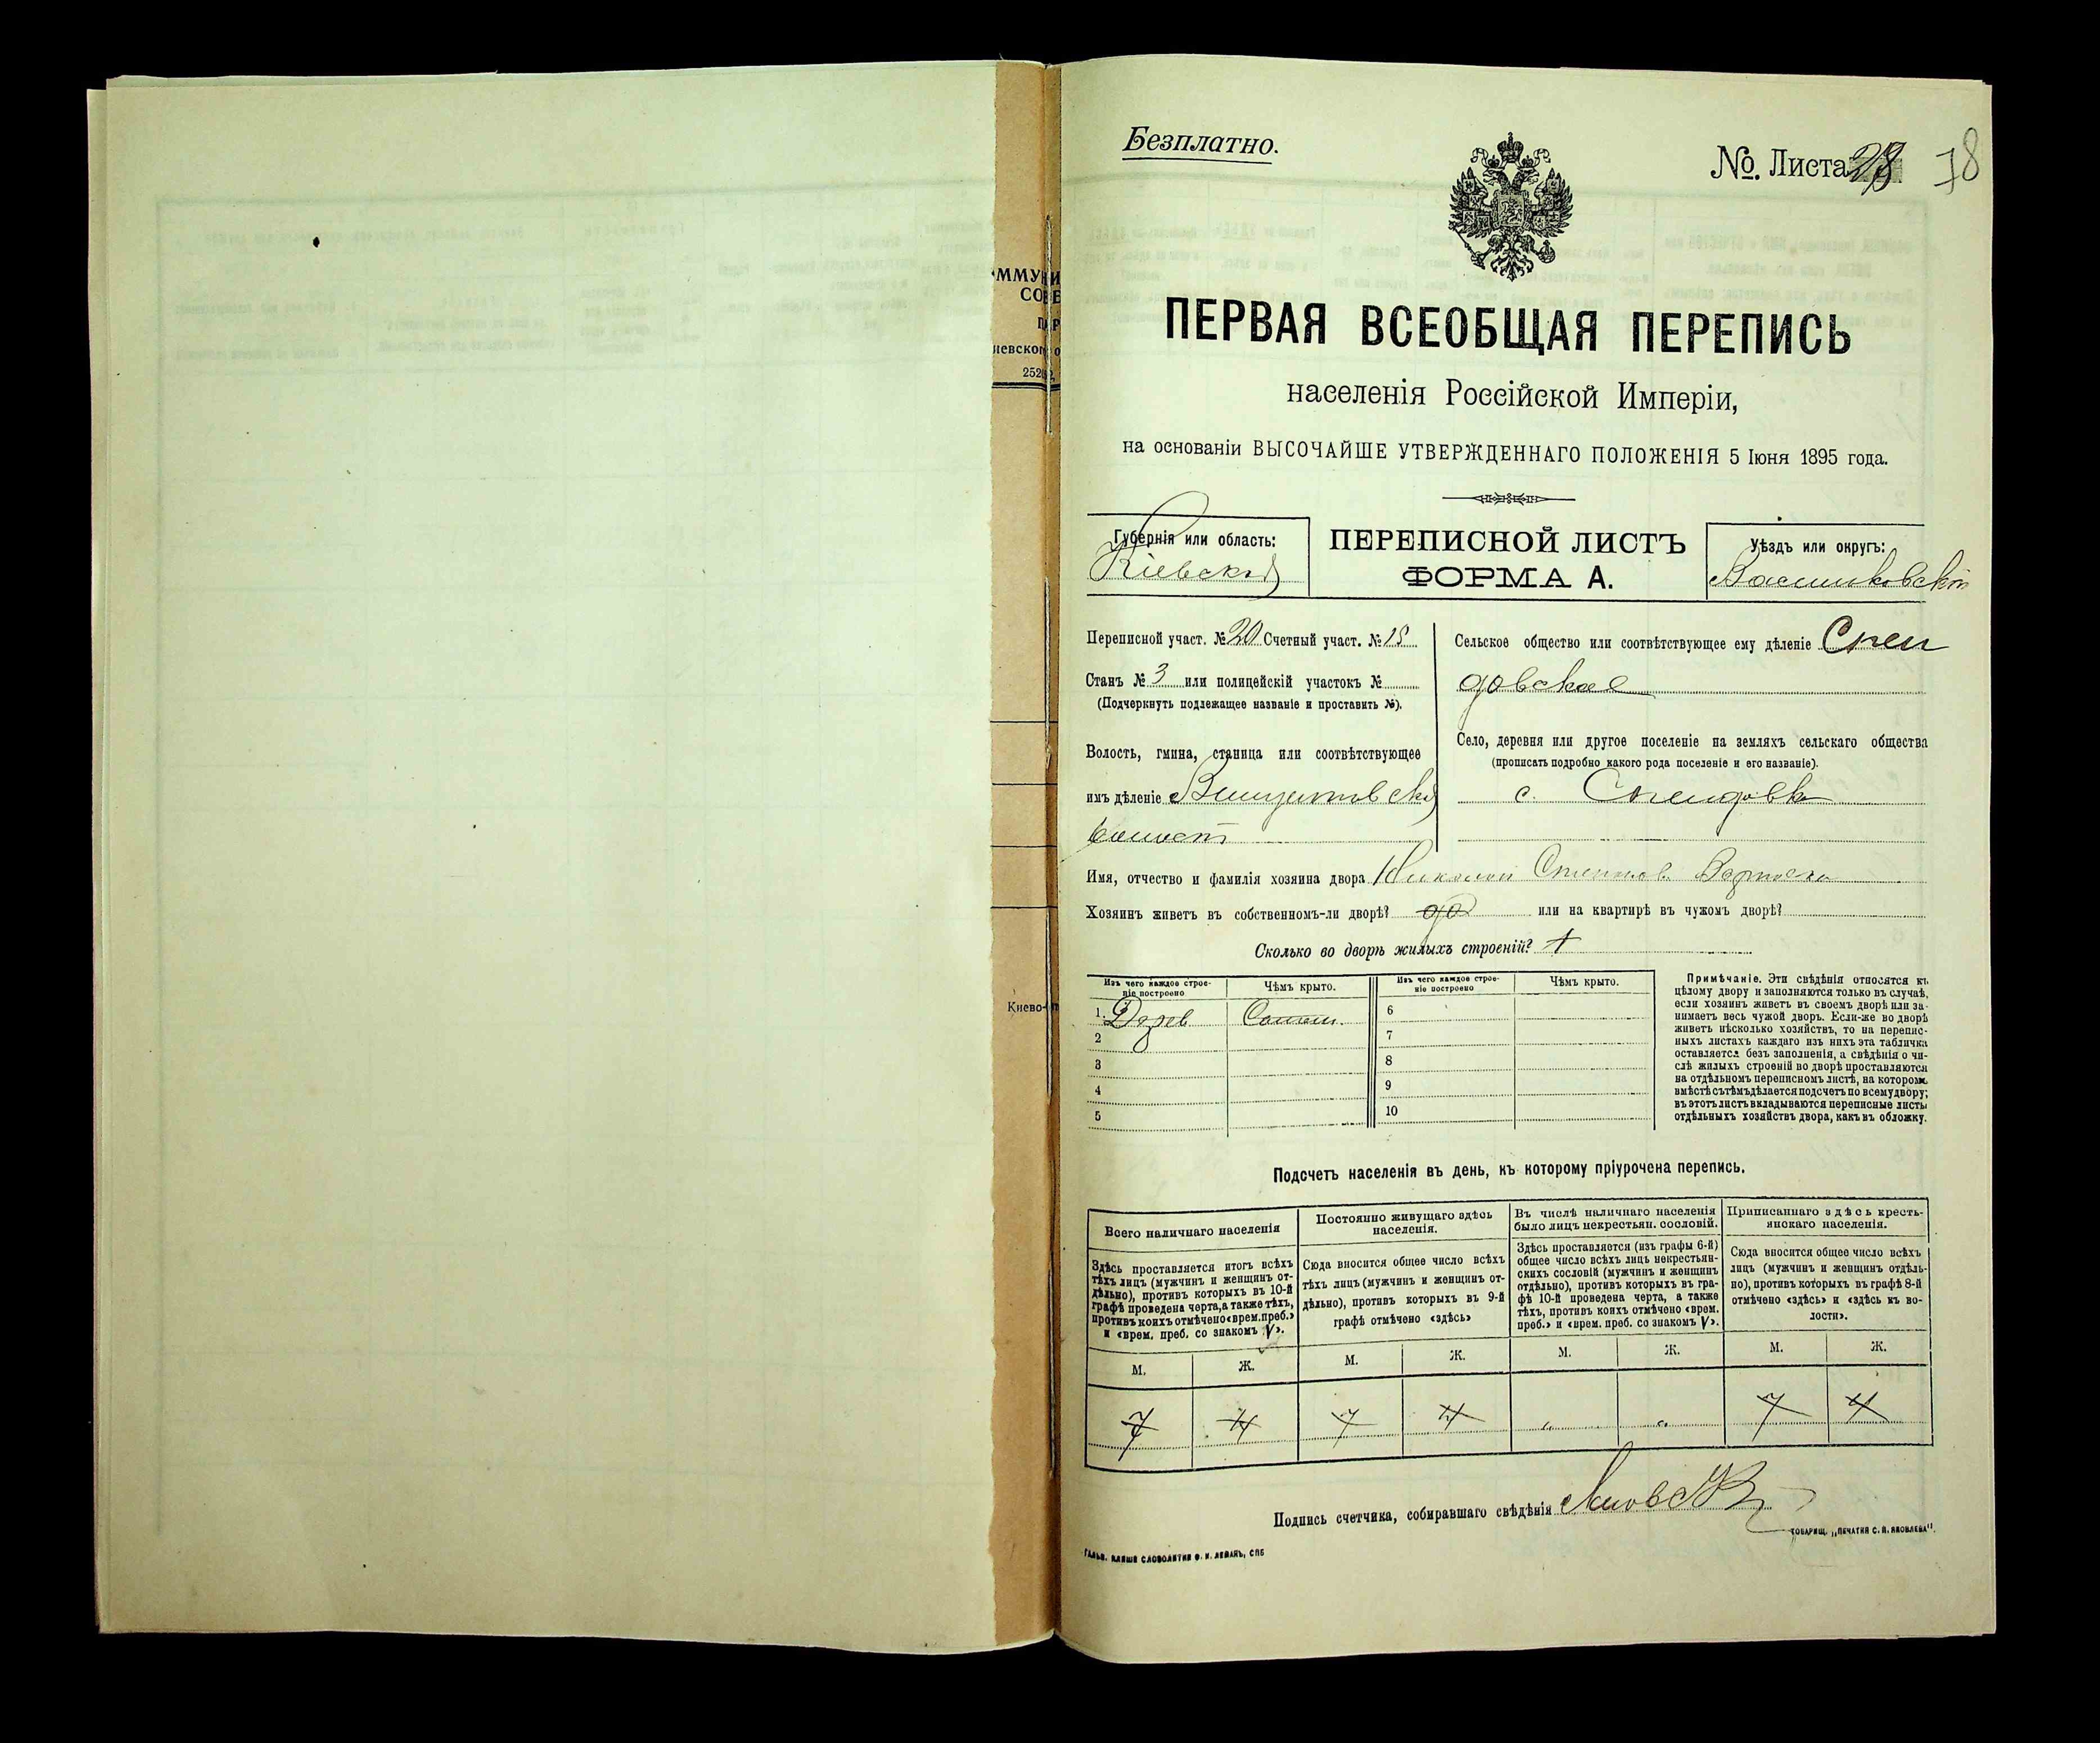 Безплатно.
№. Листа 28
78
ПЕРВАЯ ВСЕОБЩАЯ ПЕРЕПИСЬ
населенія Россійской Имперіи,
на основаніи ВЫСОЧАЙШЕ УТВЕРЖДЕННАГО ПОЛОЖЕНІЯ 5 Іюня 1895 года.
Губернія или область:
Кіевская
ПЕРЕПИСНОЙ ЛИСТЪ
ФОРМА А.
Уѣздъ или округъ:
Васильковскій
Переписной участ. № 20 Счетный участ. №
Станъ № 3 или полицейскій участокъ №
(Подчеркнуть подлежащее названіе и проставить №).
Волость, гмина, станица или соотвѣтствующее
имъ дѣленіе Винцентовская
волость
Сельское общество или соотвѣтствующее ему дѣленіе Спен
довское
Село, деревня или другое поселеніе на земляхъ сельскаго общества
(прописать подробно какого рода поселеніе и его названіе).
с. Спендовка
Имя, отчество и фамилія хозяина двора Николай
Хозяинъ живетъ въ собственномъ-ли дворѣ? да или на квартирѣ въ чужомъ дворѣ?
Сколько во дворѣ жилыхъ строеній? 1
Изъ чего каждое строе-
ніе построено
Чѣмъ крыто.
Изъ чего каждое строе-
ніе построено
Чѣмъ крыто.
1. Дерев Солом.
2
3
4
5
6
7
8
9
10
Примѣчаніе. Эти свѣдѣнія относятся къ
цѣлому двору и заполняются только въ случаѣ,
если хозяинъ живетъ въ своемъ дворѣ или за-
нимаетъ весь чужой дворъ. Если-же во дворѣ
живетъ нѣсколько хозяйствъ, то на перепис-
ныхъ листахъ каждаго изъ нихъ эта табличка
оставляется безъ заполненія, а свѣдѣнія о чи-
слѣ жилыхъ строеній во дворѣ проставляются
на отдѣльномъ переписномъ листѣ, на которомъ
вмѣстѣ съ тѣмъ дѣлается подсчетъ по всему двору;
въ этотъ листъ вкладываются переписные листы
отдѣльныхъ хозяйствъ двора, какъ въ обложку.
Подсчетъ населенія въ день, къ которому пріурочена перепись.
Всего наличнаго населенія
Здѣсь проставляется итогъ всѣхъ
тѣхъ лицъ (мужчинъ и женщинъ от-
дѣльно), противъ которыхъ въ 10-й
графѣ проведена черта, а также тѣхъ,
противъ коихъ отмѣчено «врем. преб.»
и «врем. преб. со знакомъ V».
Постоянно живущаго здѣсь
населенія.
Сюда вносится общее число всѣхъ
тѣхъ лицъ (мужчинъ и женщинъ от-
дѣльно), противъ которыхъ въ 9-й
графѣ отмѣчено «здѣсь»
Въ числѣ наличнаго населенія
было лицъ некрестьян. сословій.
Здѣсь проставляется (изъ графы 6-й)
общее число всѣхъ лицъ некрестьян-
скихъ сословій (мужчинъ и женщинъ
отдѣльно), противъ которыхъ въ гра-
фѣ 10-й проведена черта, а также
тѣхъ, противъ коихъ отмѣчено «врем.
преб.» и «врем. преб. со знакомъ V».
Приписаннаго здѣсь кресть-
янскаго населенія.
Сюда вносится общее число всѣхъ
лицъ (мужчинъ и женщинъ отдѣль-
но), противъ которыхъ въ графѣ 8-й
отмѣчено «здѣсь» и «здѣсь къ во-
лости».
М. Ж. М. Ж. М. Ж. М. Ж.
7 4 7 4 „ „ 7 4
Подпись счетчика, собиравшаго свѣдѣнія
ТОВАРИЩ. „ПЕЧАТНЯ С. П. ЯКОВЛЕВА".
ГАЛЬВ. КЛИШЕ СЛОВОЛИТНИ О. И. ЛЕМАНЪ, СПБ